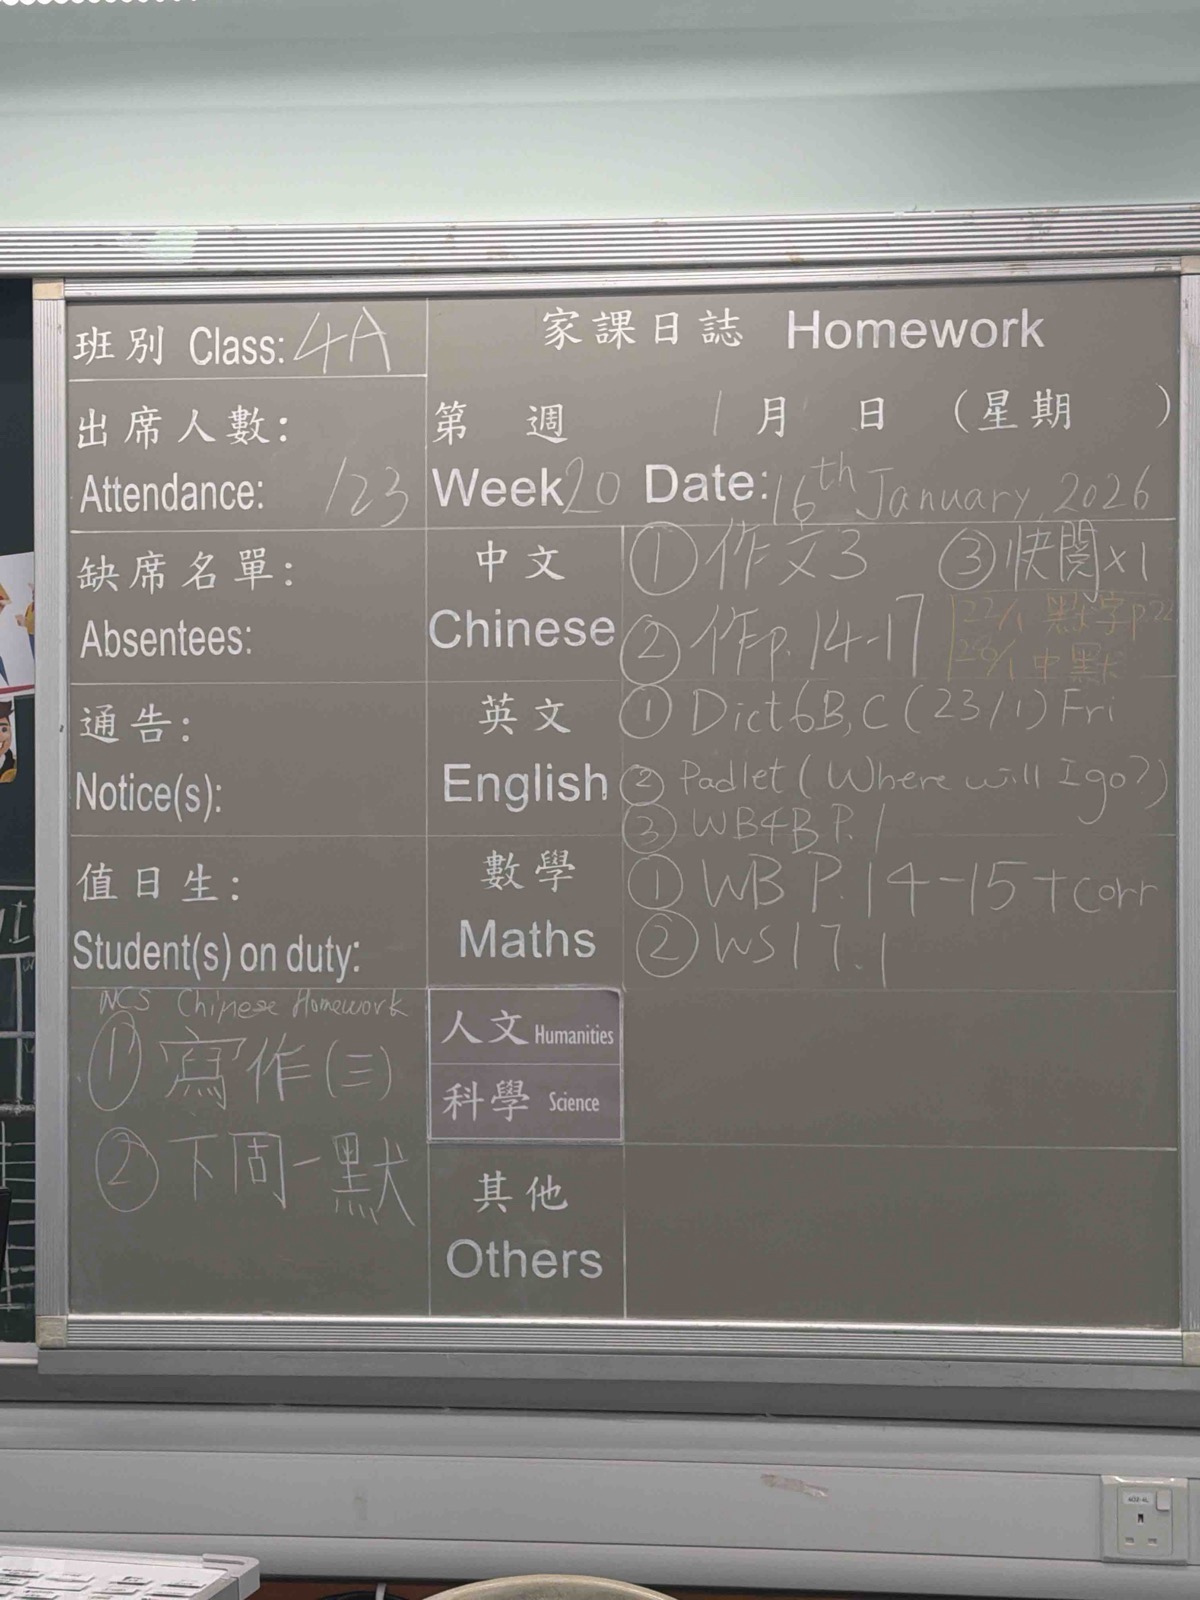 班別 Class: 4A
家課日誌 Homework
出席人數:
Attendance: /23
第 週 1月 日 (星期 )
Week 20 Date: 16th January, 2026
缺席名單:
Absentees:
中文
Chinese
① 作文3 ③ 快閱x1
② 作p.14-17
22/1 默字p.22
26/1 中默
通告:
Notice(s):
英文
English
① Dict 6B, C (23/1) Fri
② Padlet (Where will I go?)
③ WB4B P.1
值日生:
Student(s) on duty:
數學
Maths
① WB P.14-15 + corr
② WS17.1
NCS Chinese Homework
① 寫作(三)
② 下周一默
人文 Humanities
科學 Science
其他
Others